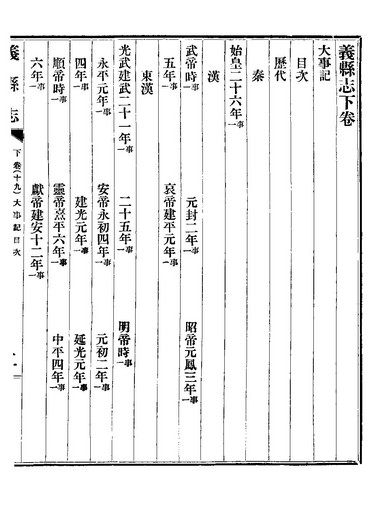 義縣志下卷
大事記
目次
歷代
秦
始皇二十六年一事
漢
武帝時一事 元封二年一事 昭帝元鳳三年一事
五年一事 哀帝建平元年一事
東漢
光武建武二十一年一事 二十五年一事 明帝時一事
永平元年一事 安帝永初四年一事 元初二年一事
四年一事 建光元年一事 延光元年一事
順帝時一事 靈帝熹平六年一事 中平四年一事
六年一事 獻帝建安十二年一事
義縣志 下卷(十九)大事記目次 一